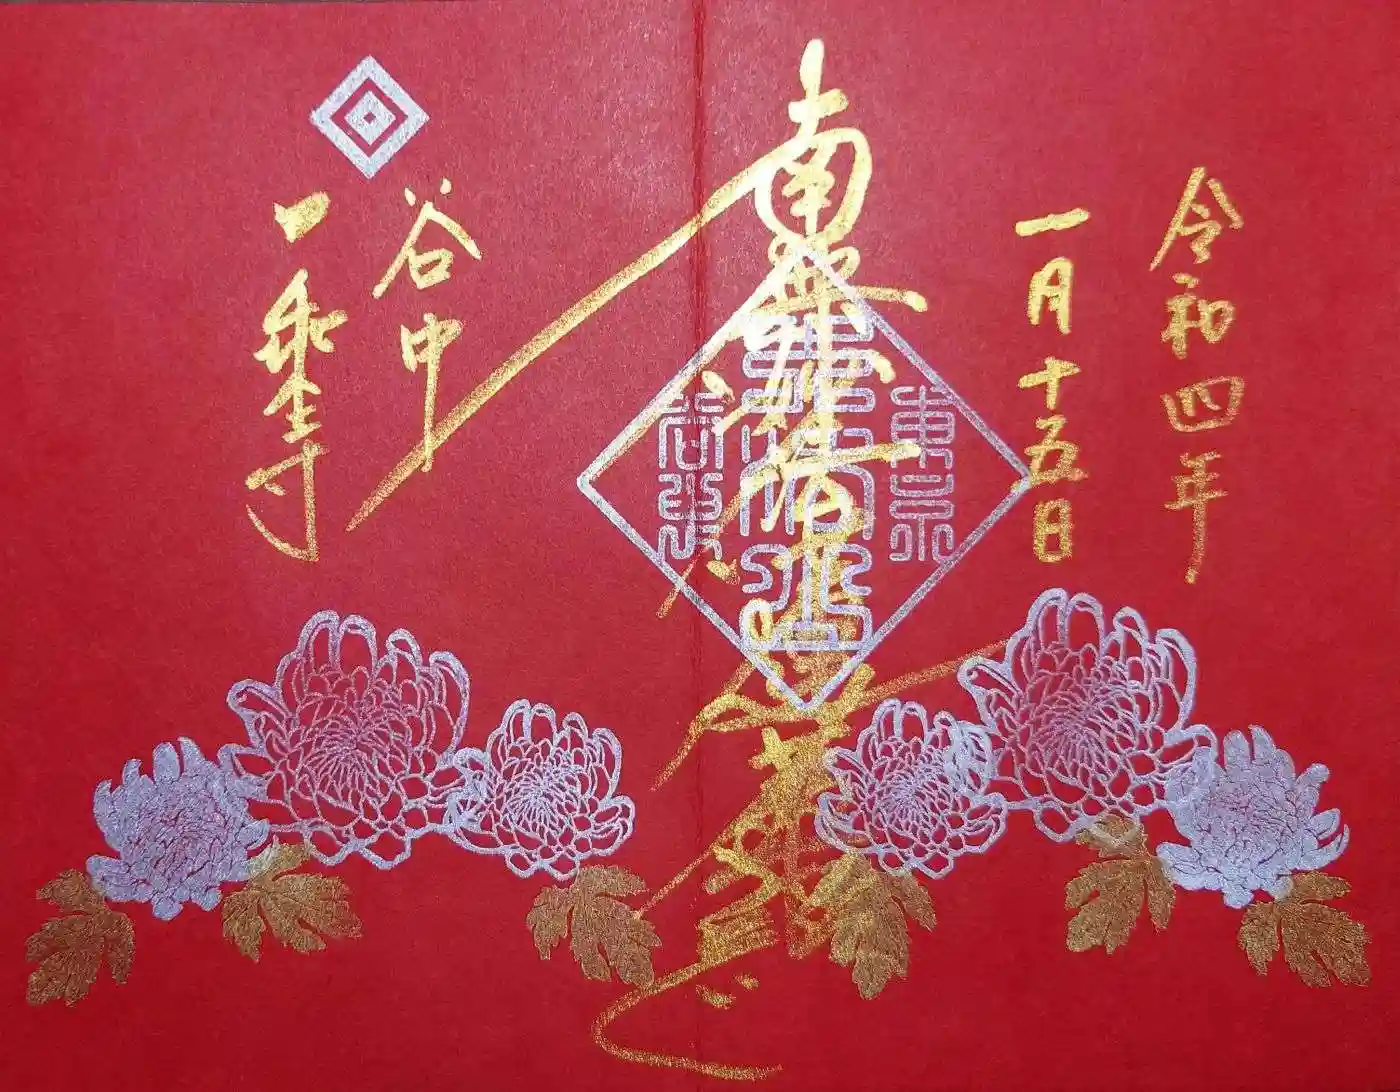 令和四年
一月十五日
東京
南無妙法蓮華経
谷中
一乗寺